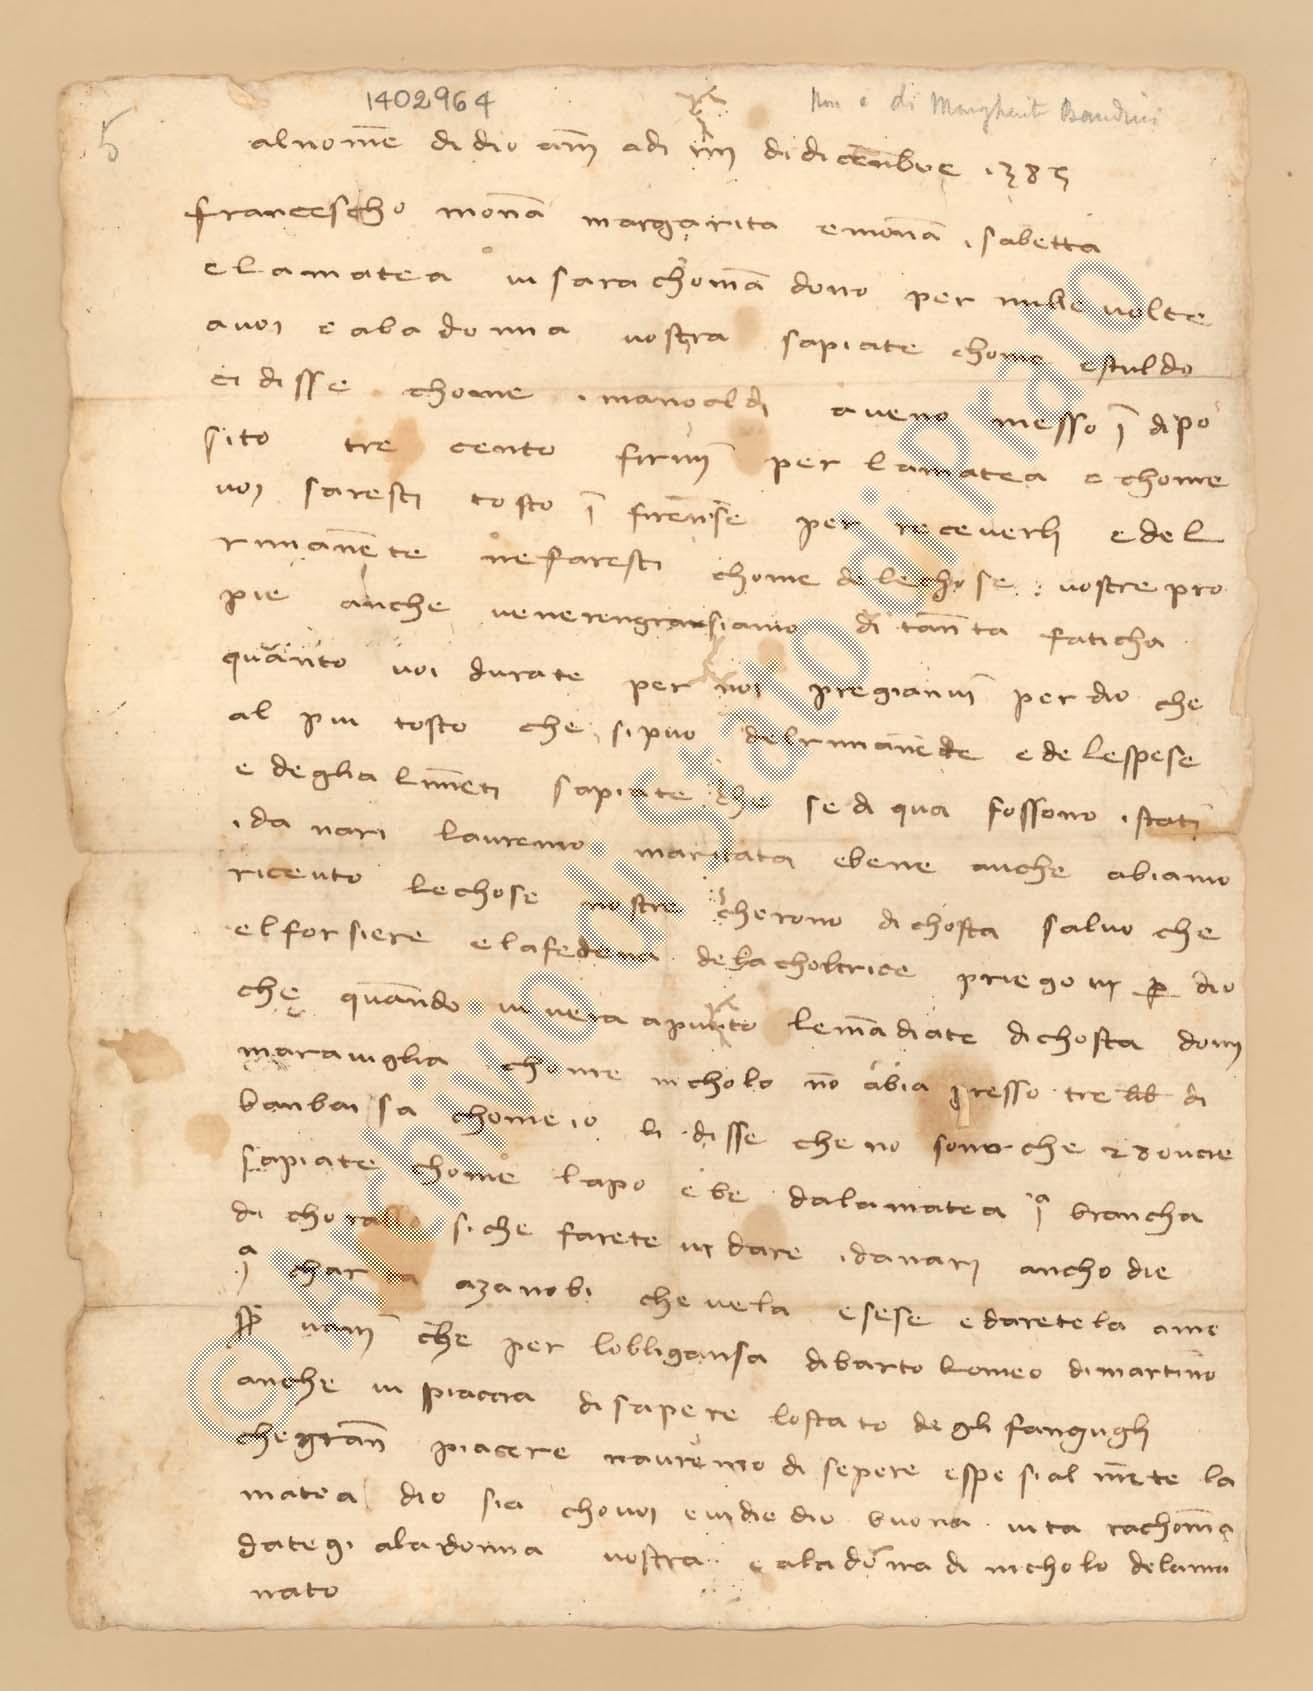 1402964
Non è di Margherit Bandini
5
al nome di dio am̅ adi iiii di dicembre 1385
francescho monā margarita e monā isabetta
e la matea vi si rachomādono per mile volte
a voi e a la donna vostra sapiate chome estuldo
ci disse chome i manoaldi aveno messo ī dipo
sito tre cento firini per la matea e chome
voi saresti tosto ī firēnse per receverli e del
rimanēte ne faresti chome de le chose vostre pro
pie anche ve ne rengrasiamo di tāta faticha
quanto voi durate per noi pregianvi per dio che
al piu tosto che si puo del rimanēde e de le spese
e degli alimēti sapiate che se di qua fossono istati
i danari l auremo maritata e bene anche abiamo
riceuto le chose nostre che rono di chosta salvo che
el forsiere e la federa de la choltrice priegovi p̱ dio
che quādo vi vera a punto le mādiate di chosta domi
maraviglia chome nicholo nō abia presso tre lib di
banbaisa chome io li disse che no sono che 28 oncie
sapiate chome lapo ebe da la matea ī̊ brancha
di chorallo si che farete vi dare i danari ancho die
ī̊ charta a zanobi che ve la esese e daretela a me
s̱p̱ vani che per l obligansa di bartolomeo di martino
anche vi piaccia di sapere lo stato degli fangugli
che grān piacere n auremo di sepere espesialmēte la
matea dio sia cho voi e vi die dio buona vita rachomā
dategi a la donna vostra e a la dōna di nicholo de l ami
nato
© Archivio di Stato di Prato